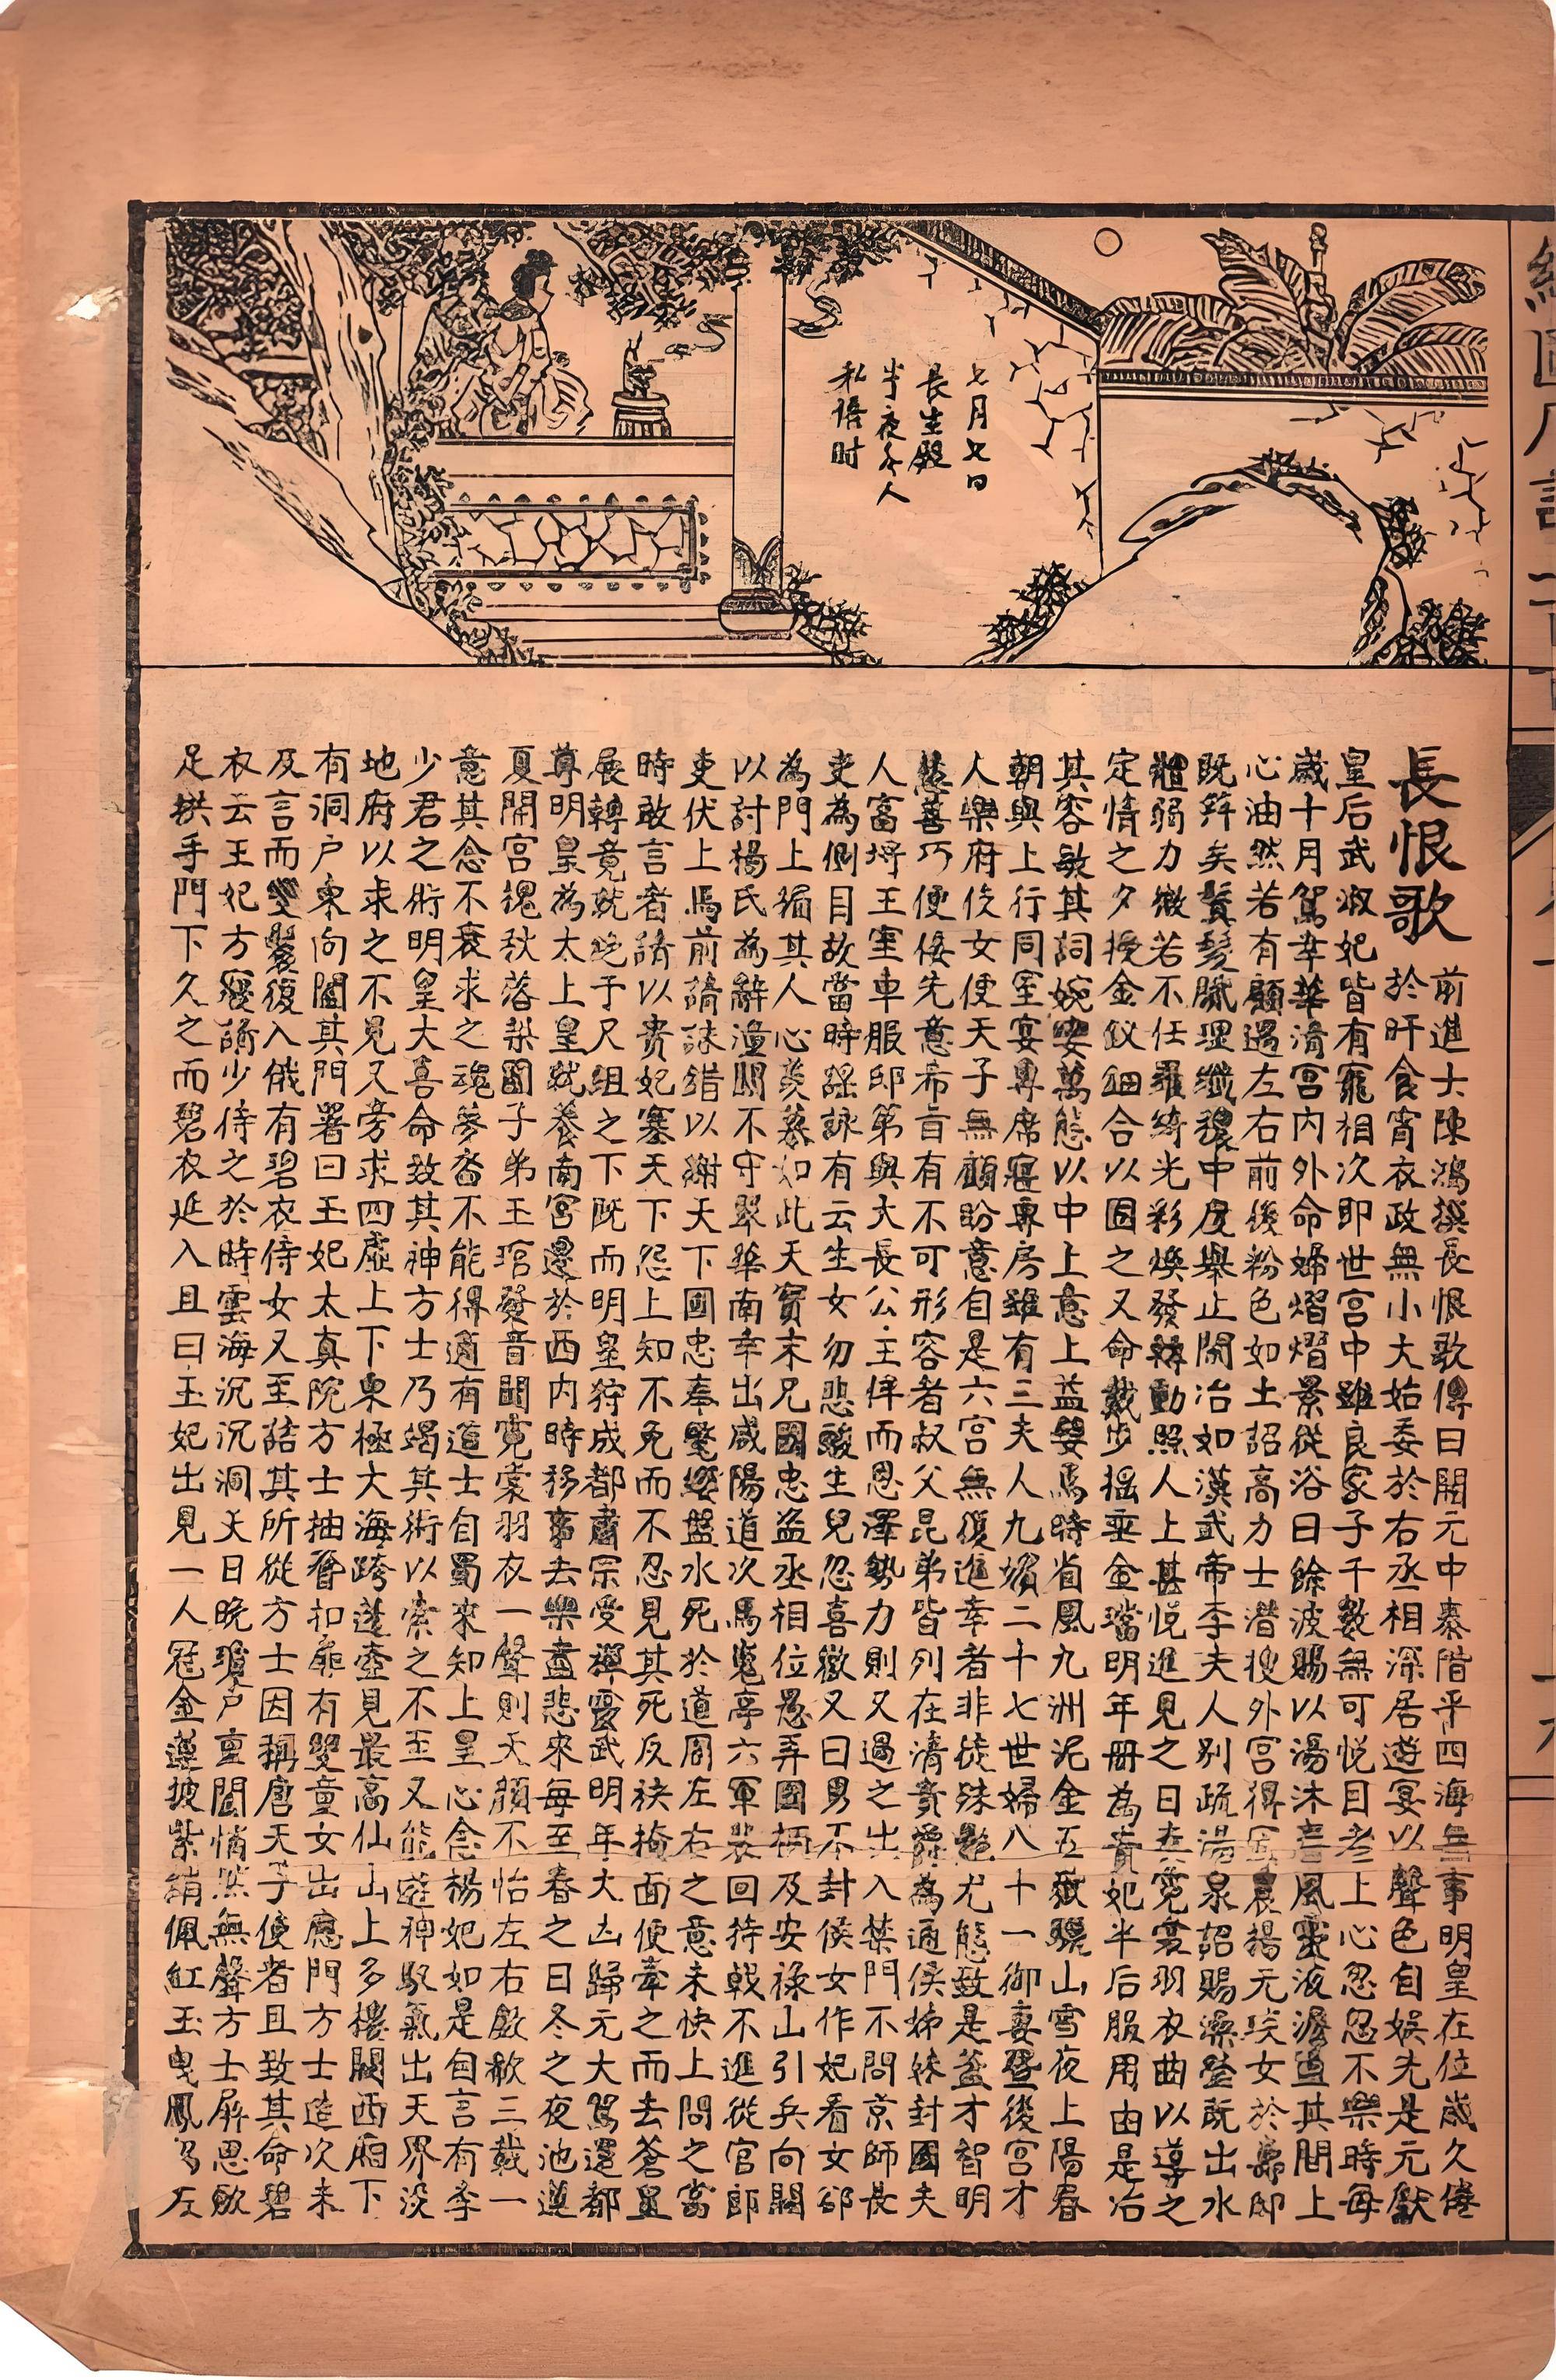 七月七日
長生殿
半夜無人
私语时
長恨歌
前進士陳鴻撰長恨歌傳曰開元中泰階平四海無事明皇在位歲久倦
於旰食宵衣政無小大姑委於右丞相深居遊宴以聲色自娛先是元獻
皇后武淑妃皆有寵相次即世宮中雖良家子千數無可悅目者上心忽忽不樂時每
歲十月駕幸華清宮內外命婦熠熠景從浴日餘波賜以湯沐春風靈液澹蕩其間上
心油然若有顧遇左右前後粉色如土詔高力士潛搜外宮得弘農楊元琰女於壽邸
既笄矣鬢髮膩理纖穠中度舉止閒冶如漢武帝李夫人別疏湯泉詔賜澡瑩既出水
體弱力微若不任羅綺光彩煥發轉動照人上甚悅進見之日奏霓裳羽衣曲以導之
定情之夕授金釵鈿合以固之又命戴步搖垂金璫明年冊為貴妃半后服用由是冶
其容敏其詞婉孌萬態以中上意上益嬖焉時省風九洲泥金五嶽驪山雪夜上陽春
朝與上行同室宴專席寢專房雖有三夫人九嬪二十七世婦八十一御妻暨後宮才
人樂府伎女使天子無顧盼意自是六宮無復進幸者非徒殊艷尤態致是蓋才智明
慧善巧便佞先意希旨有不可形容者叔父昆弟皆列在清貴爵為通侯姊妹封國夫
人富埒王室車服邸第與大長公主侔而恩澤勢力則又過之出入禁門不問京師長
吏為側目故當時謠詠有云生女勿悲酸生兒忽喜歡又曰男不封侯女作妃看女卻
為門上楣其人心羨慕如此天寶末兄國忠盜丞相位愚弄國柄及安祿山引兵向闕
以討楊氏為辭潼關不守翠華南幸出咸陽道次馬嵬亭六軍裴回持戟不進從官郎
吏伏上馬前請誅錯以謝天下國忠奉氂纓盤水死於道周左右之意未快上問之當
時敢言者請以貴妃塞天下怨上知不免而不忍見其死反袂掩面使牽之而去蒼皇
展轉竟就絕于尺組之下既而明皇狩成都肅宗受禪靈武明年大凶歸元大駕還都
尊明皇為太上皇就養南宮遷於西內時移事去樂盡悲來每至春之日冬之夜池蓮
夏開宮槐秋落梨園子弟玉琯發音聞霓裳羽衣一聲則天顏不怡左右歔欷三載一
意其念不衰求之魂夢杳不能得適有道士自蜀來知上皇心念楊妃如是自言有李
少君之術明皇大喜命致其神方士乃竭其術以索之不至又能遊神馭氣出天界沒
地府以求之不見又旁求四虛上下東極大海跨蓬壺見最高仙山上多樓闕西廂下
有洞戶東向闔其門署曰玉妃太真院方士抽簪扣扉有雙童女出應門方士造次未
及言而雙鬟復入俄有碧衣侍女又至詰其所從方士因稱唐天子使者且致其命碧
衣云玉妃方寢請少侍之於時雲海沉沉洞天日晚瓊戶重闔悄然無聲方士屏思歛
足拱手門下久之而碧衣延入且曰玉妃出見一人冠金蓮披紫綃佩紅玉曳鳳舄左